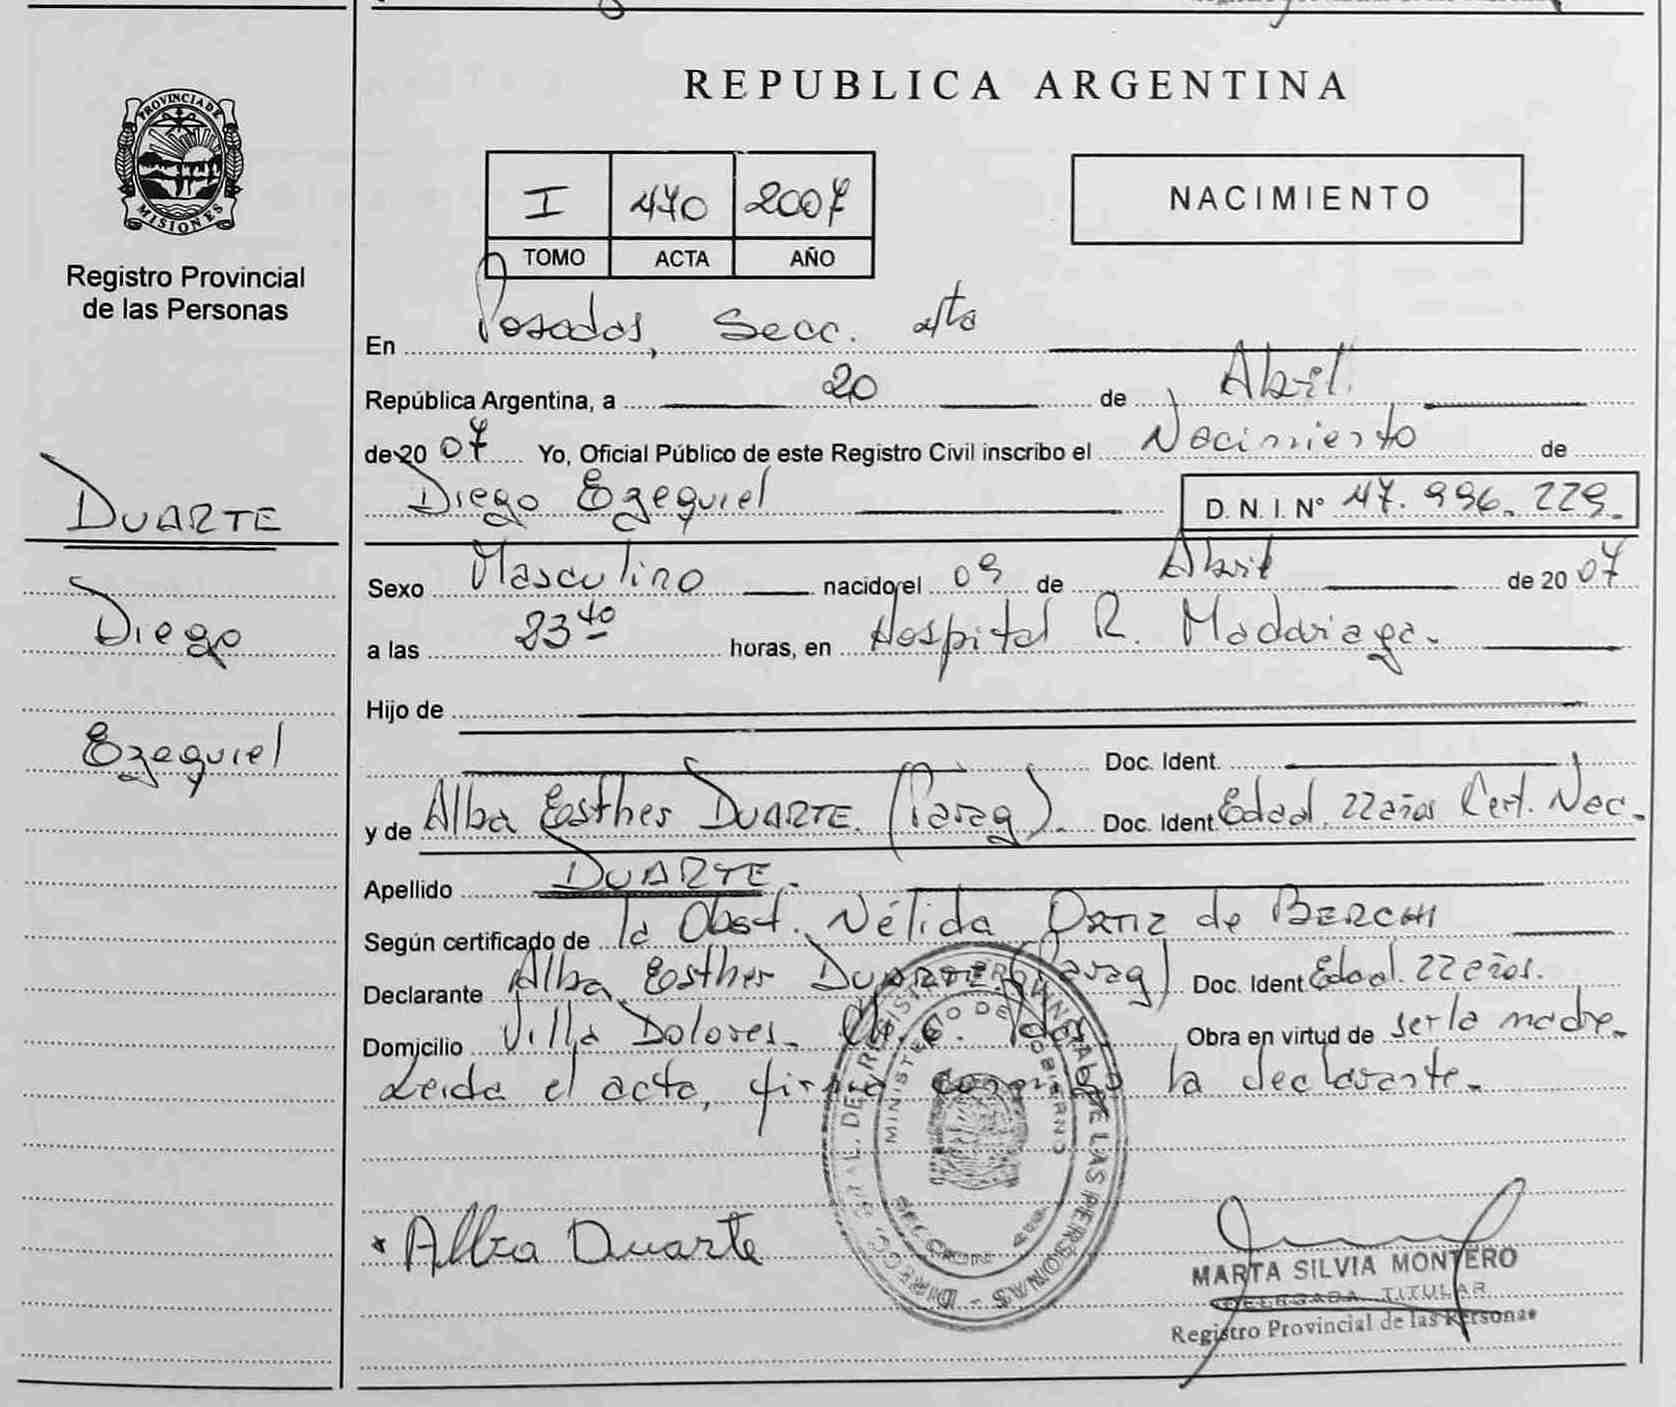 REPUBLICA ARGENTINA
PROVINCIA DE
MISIONES
Registro Provincial
de las Personas
I 470 2007
TOMO ACTA AÑO
NACIMIENTO
En Posadas, Secc. 4ta
República Argentina, a 20 de Abril
de 20 07 Yo, Oficial Público de este Registro Civil inscribo el Nacimiento de
Diego Ezequiel D. N. I. Nº 47. 996. 229.
DUARTE
Diego
Ezequiel
Sexo Masculino nacido el 09 de Abril de 20 07
a las 23 40 horas, en Hospital R. Madariaga.
Hijo de
Doc. Ident.
y de Alba Esther DUARTE. (Parag). Doc. Ident. Edad. 22 años Cert. Nac.
Apellido DUARTE.
Según certificado de la Obst. Nélida ORTIZ de BERCHI
Declarante Alba Esther DUARTE. (Parag) Doc. Ident. Edad. 22 años.
Domicilio Villa Dolores. Obra en virtud de ser la madre.
Leida el acta, firma la declarante.
MINISTERIO DE GOBIERNO
Alba Duarte
MARTA SILVIA MONTERO
DELEGADA TITULAR
Registro Provincial de las Personas